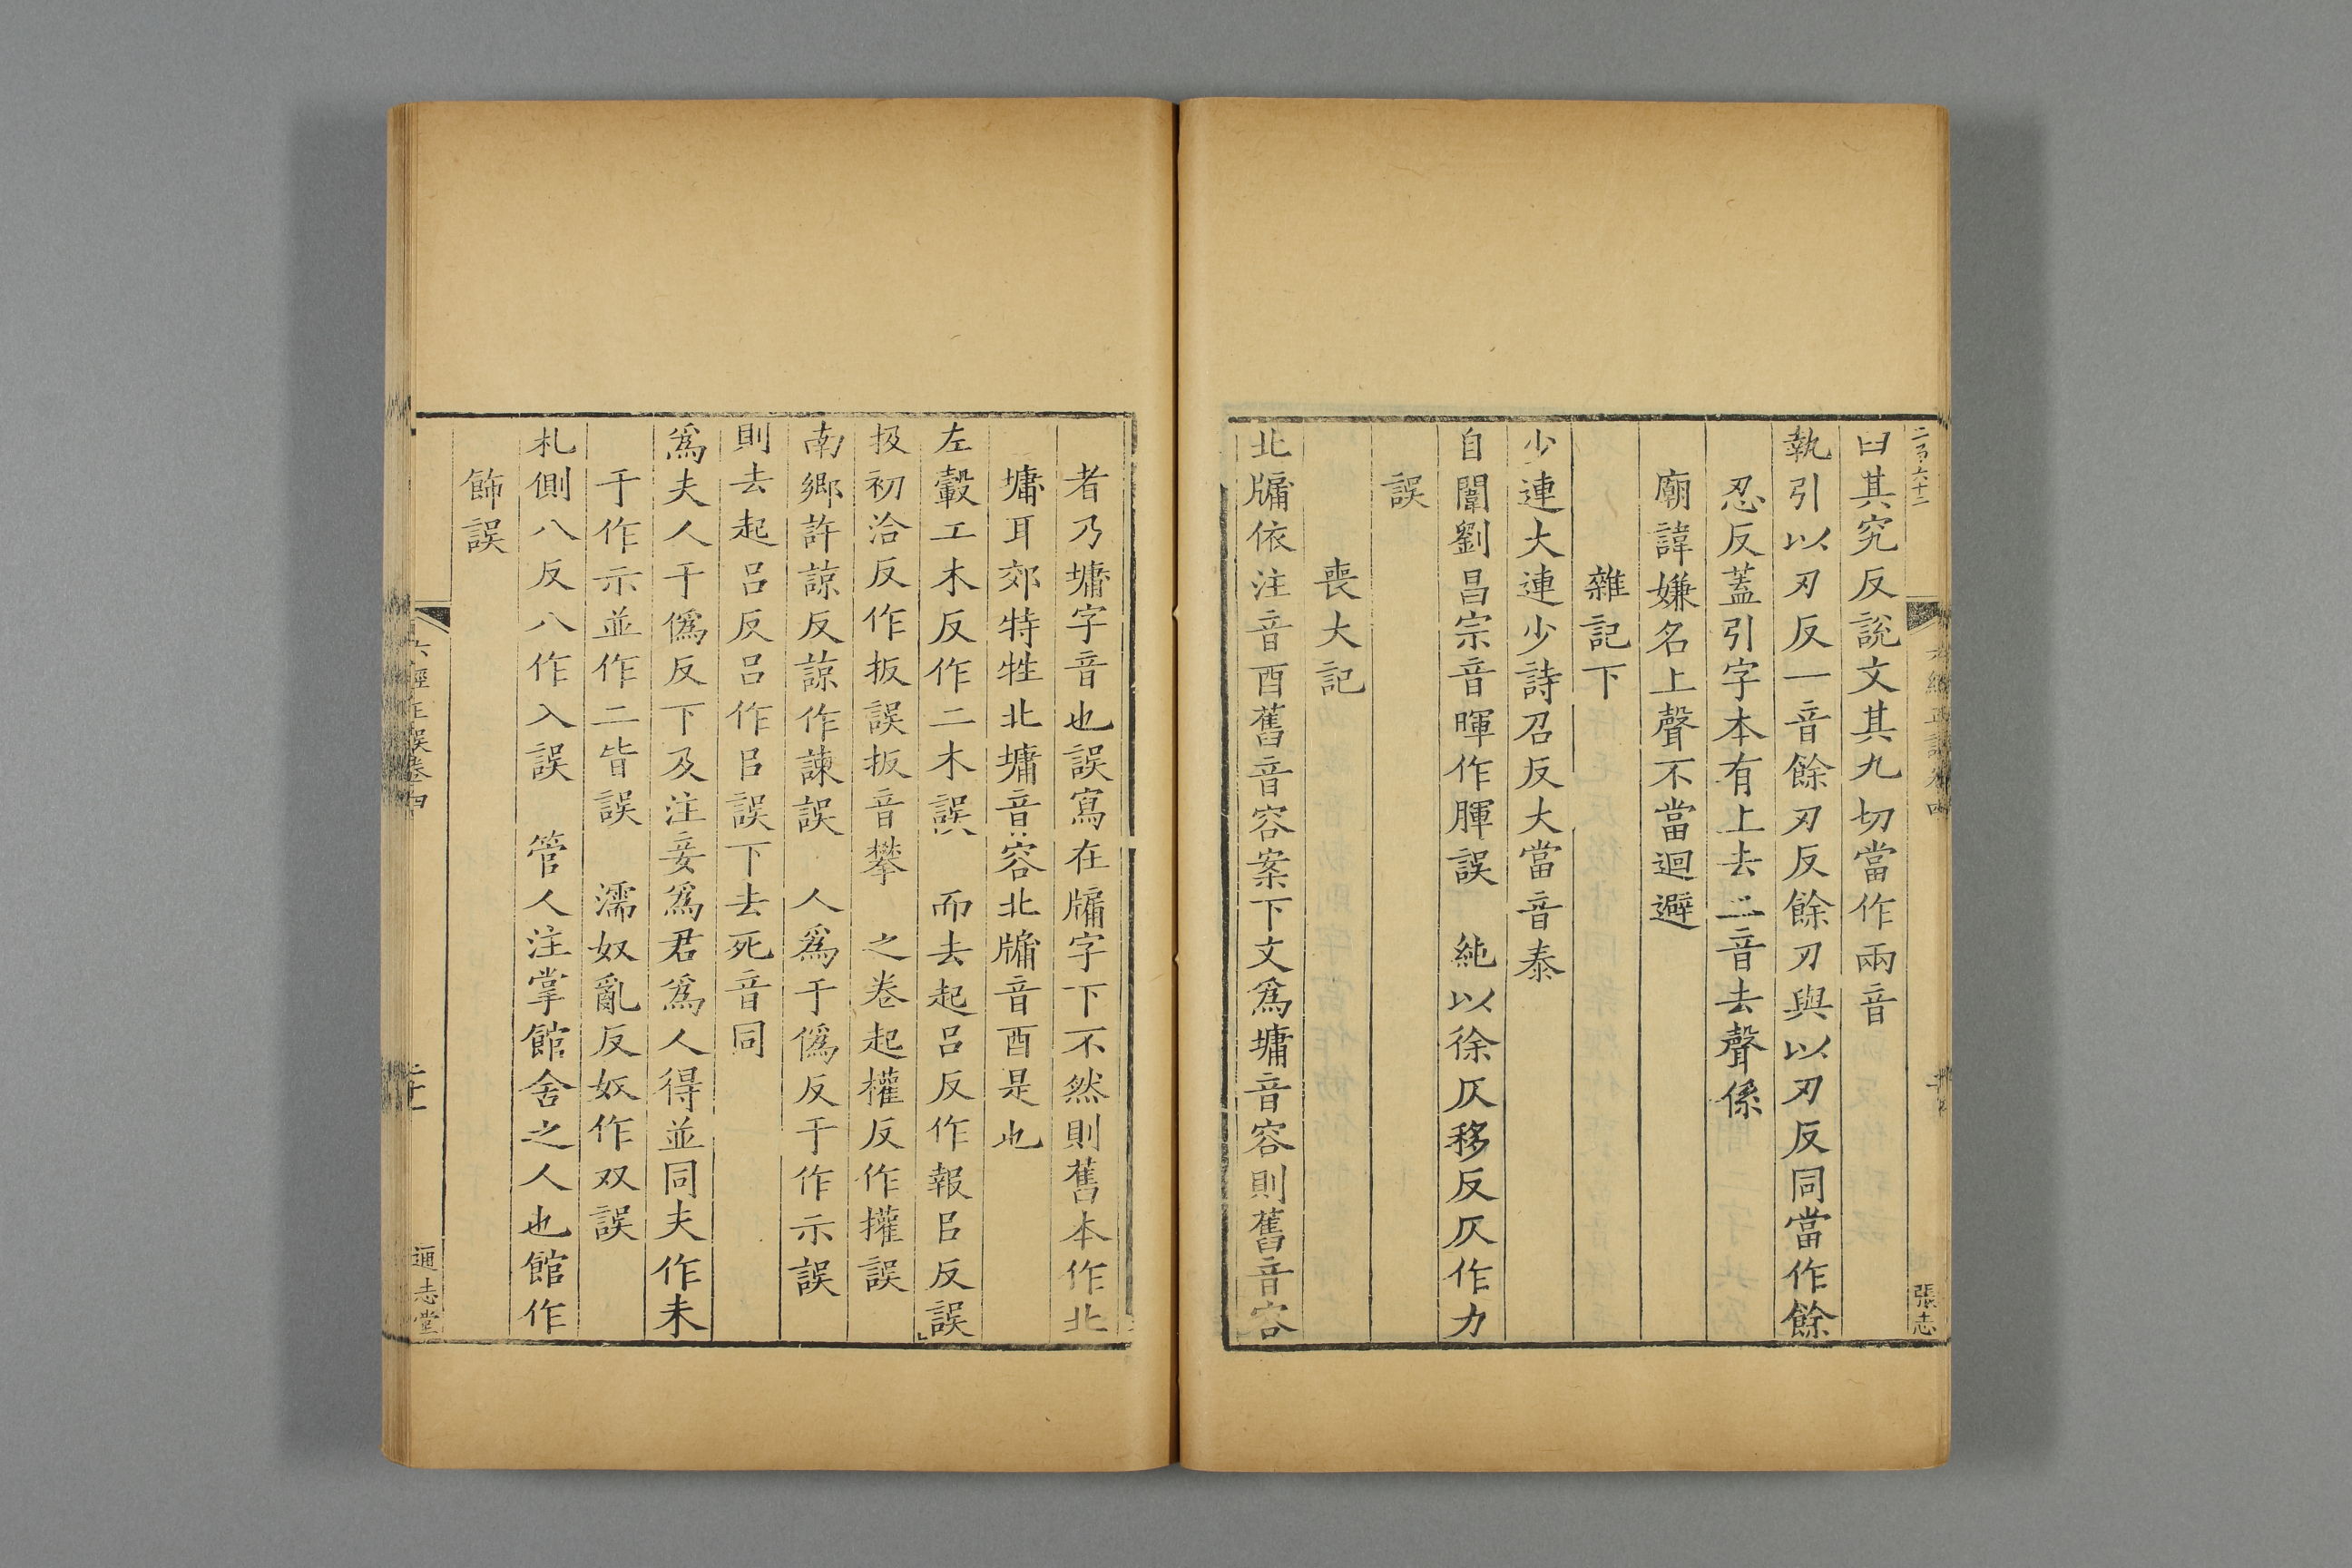 臼其究反說文其九切當作兩音
執引以刃反一音餘刃反餘刃與以刃反同當作餘
忍反蓋引字本有上去二音去聲係
廟諱嫌名上聲不當迴避
雜記下
少連大連少詩召反大當音泰
自闈劉昌宗音暉作腪誤 純以徐仄移反仄作力
誤
喪大記
北牖依注音酉舊音容案下文爲墉音容則舊音容
張志
者乃墉字音也誤寫在牖字下不然則舊本作北
墉耳郊特牲北墉音容北牖音酉是也
左轂工木反作二木誤 而去起呂反作報㠯反誤
扱初洽反作扳誤扳音攀 之卷起權反作㩲誤
南鄉許諒反諒作諫誤 人爲于僞反于作示誤
則去起呂反呂作㠯誤下去死音同
爲夫人于僞反下及注妾爲君爲人得並同夫作未
于作示並作二皆誤 濡奴亂反奴作双誤
札側八反八作入誤 管人注掌館舍之人也館作
飾誤
六經正誤卷四
通志堂